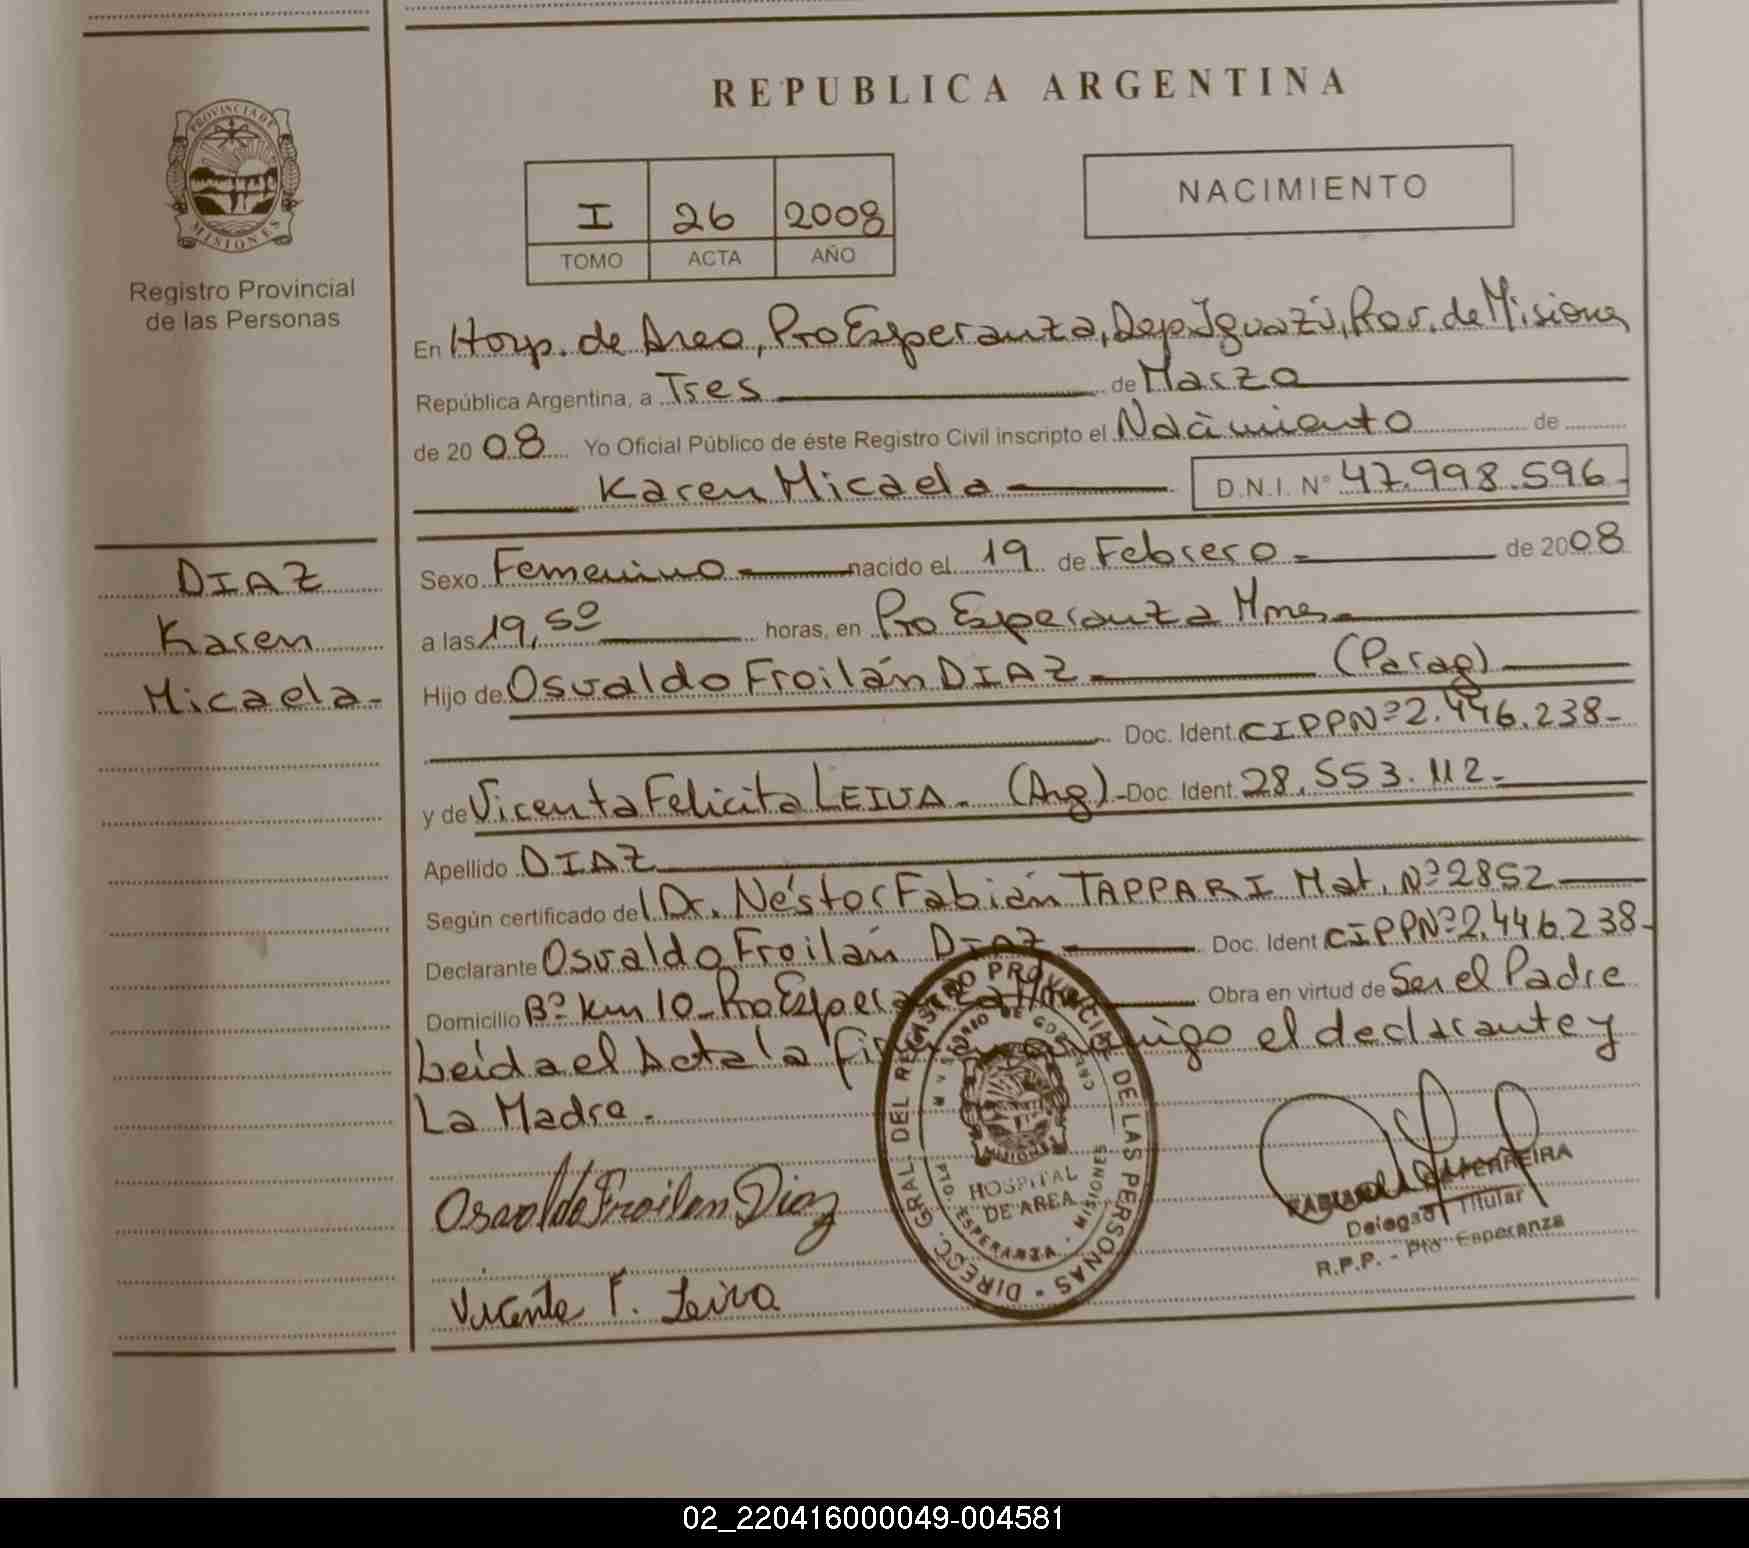 REPUBLICA ARGENTINA
PROVINCIA DE MISIONES
Registro Provincial
de las Personas
I 26 2008
TOMO ACTA AÑO
NACIMIENTO
En Hosp. de Area, Pto Esperanza, Dep. Iguazú, Prov. de Misiones
República Argentina, a Tres de Marzo
de 2008 Yo Oficial Público de éste Registro Civil inscripto el Nacimiento de
Karen Micaela D.N.I. Nº 47.998.596-
DIAZ
Karen
Micaela-
Sexo Femenino nacido el 19 de Febrero de 2008
a las 19,50 horas, en Pto Esperanza Mnes
Hijo de Osvaldo Froilán DIAZ (Parag)
Doc. Ident. CIPPNº2.446.238-
y de Vicenta Felicita LEIVA. (Arg)- Doc. Ident. 28.553.112-
Apellido DIAZ
Según certificado del Dr. Néstor Fabián TAPPARI Mat. Nº2852
Declarante Osvaldo Froilán DIAZ Doc. Ident CIPPNº2.446.238-
Domicilio Bº Km 10-Pto Esperanza Mnes Obra en virtud de Ser el Padre
Leída el Acta la firman conmigo el declarante y
La Madre.
Osvaldo Froilan Diaz
Vicenta F. Leiva
DIRECC. GRAL. DEL REGISTRO PROVINCIAL DE LAS PERSONAS
MINISTERIO DE GOBIERNO
MISIONES
HOSPITAL
DE AREA
PTO. ESPERANZA - MISIONES
FERREIRA
Delegado Titular
R.P.P. - Pto Esperanza
02_220416000049-004581